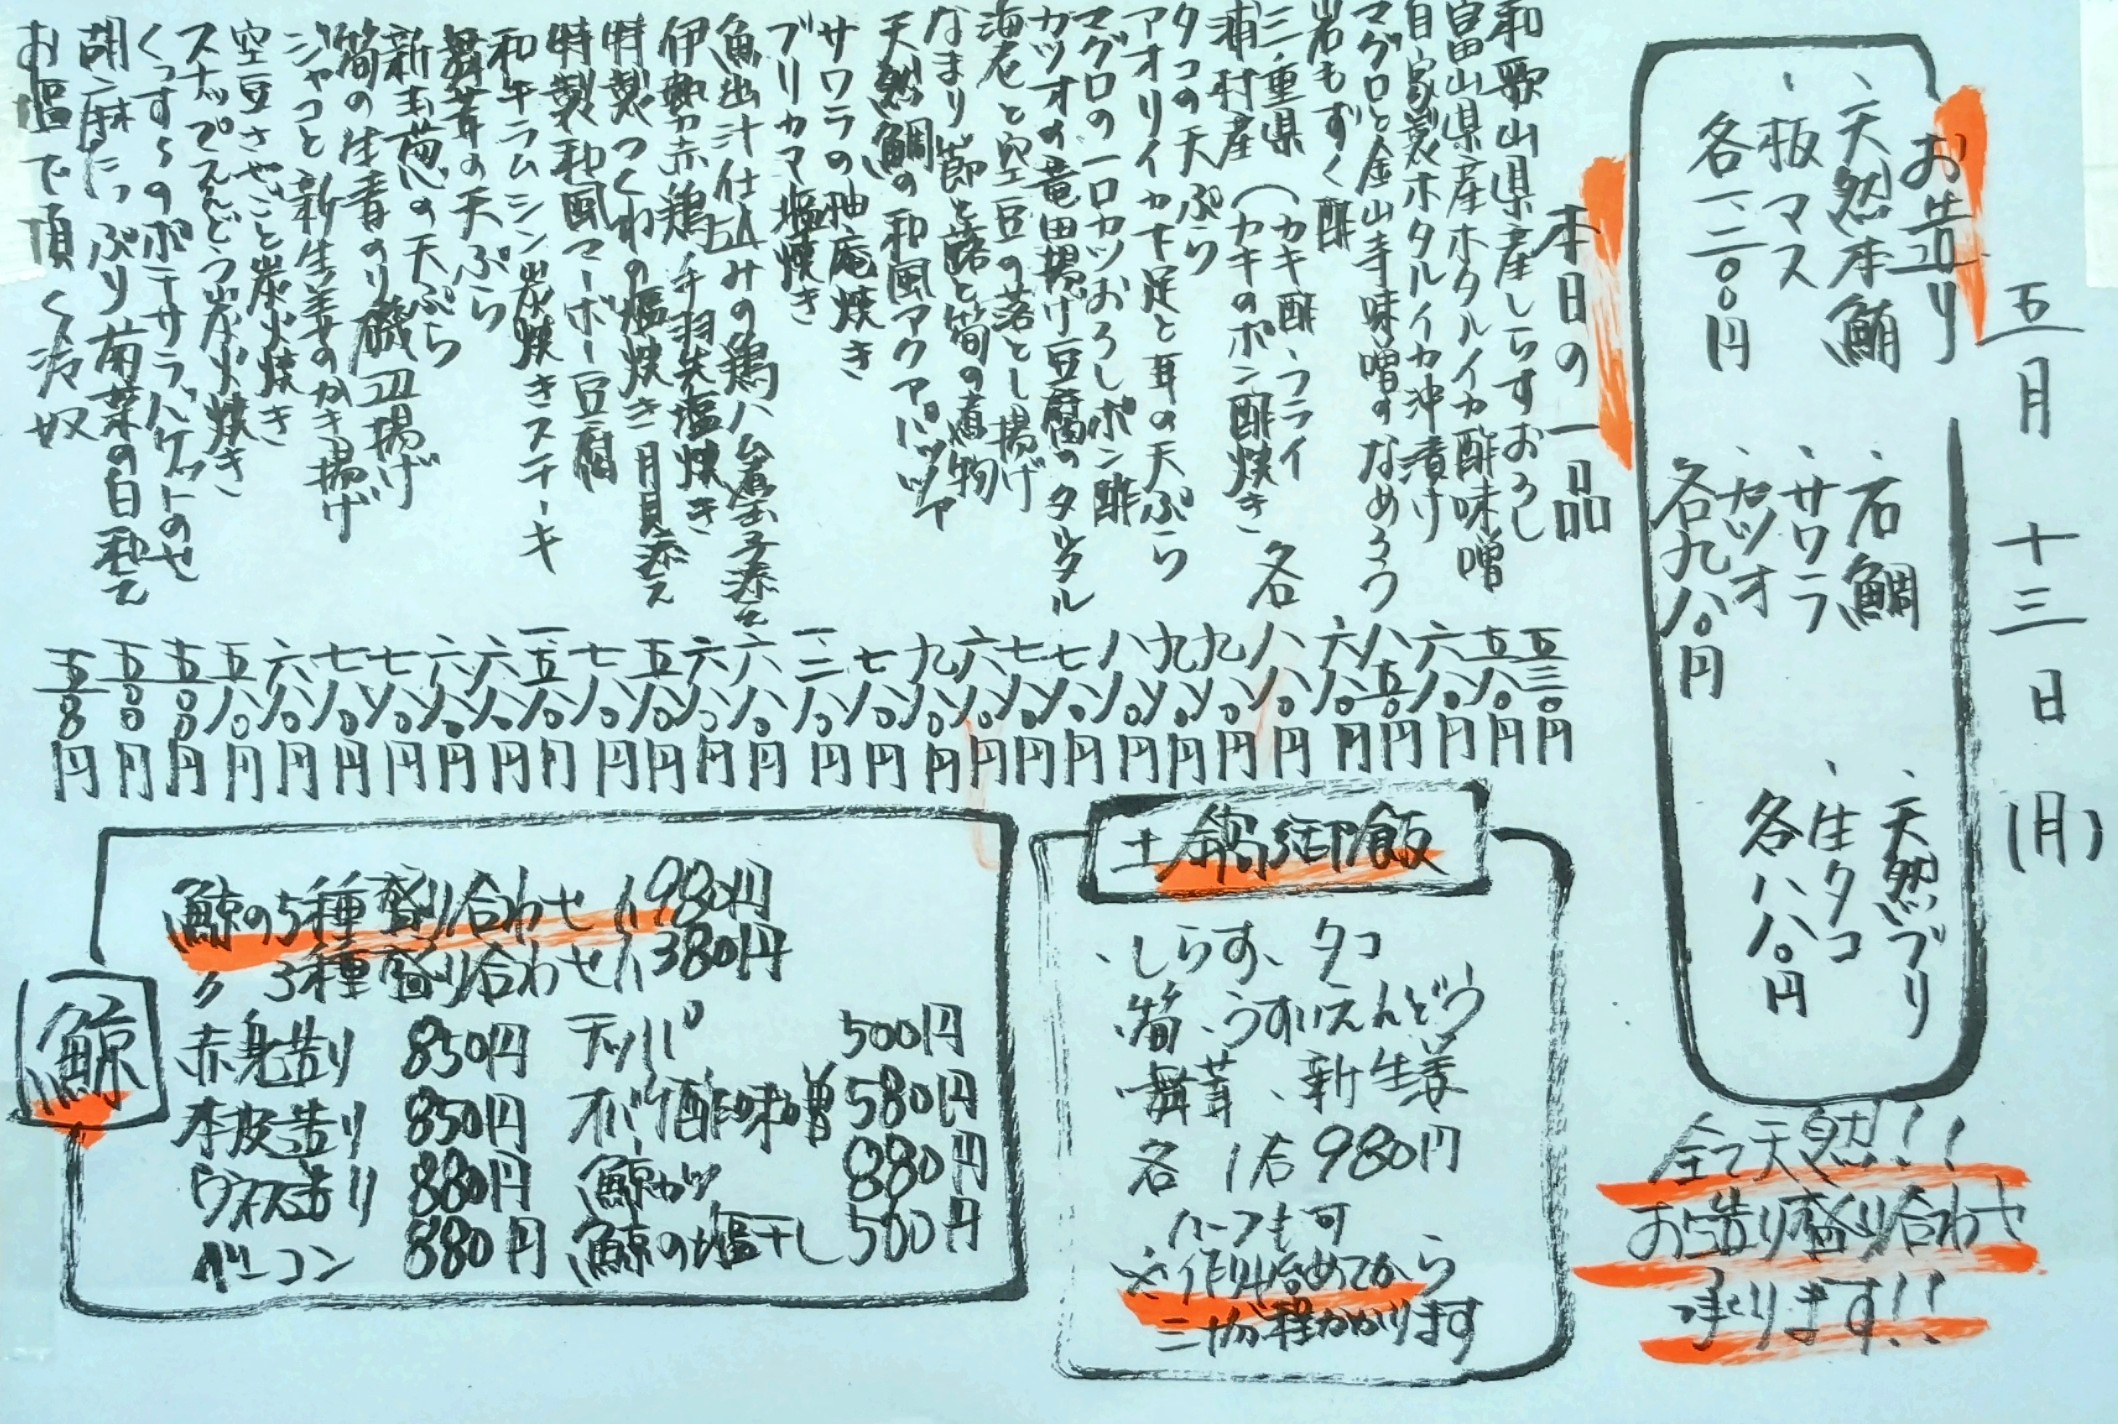 五月 十三日 (月)
お造り
、天然本鮪
、板マス
各一、二〇〇円
、石鯛
、サワラ
、カツオ
各九八〇円
、天然ブリ
、生タコ
各八八〇円
全て天然!!
お造り盛り合わせ
承ります!!
本日の一品
和歌山県産しらすおろし 五三〇円
富山県産ホタルイカ酢味噌 五八〇円
自家製ホタルイカ沖漬け 六八〇円
マグロと金山寺味噌のなめろう 八五〇円
岩もずく酢 六八〇円
三重県 (カキ酢、フライ 各 八八〇円
浦村産 (カキのポン酢焼き 九八〇円
タコの天ぷら 九八〇円
アオリイカ下足と耳の天ぷら 八八〇円
マグロの一口カツおろしポン酢 七八〇円
カツオの竜田揚げ豆腐のタルタル 七八〇円
海老と空豆の落とし揚げ 六八〇円
なまり節と蕗と筍の煮物 九八〇円
天然鯛の和風アクアパッツァ
サワラの柚庵焼き
ブリカマ塩焼き
魚出汁仕込みの鶏ハム煮玉子添え 六八〇円
伊勢赤鶏手羽先塩焼き 六八〇円
特製つくねの塩焼き月見添え 五八〇円
特製和風マーボー豆腐 七八〇円
和牛ラムシン炭焼きステーキ 一、五八〇円
舞茸の天ぷら 六八〇円
新玉葱の天ぷら 六八〇円
筍の生青のり磯辺揚げ 七八〇円
ジャコと新生姜のかき揚げ 七八〇円
空豆さやごと炭火焼き 六八〇円
スナップえんどう炭火焼き 五八〇円
くっすらのポテサラバケットのせ 五〇〇円
胡麻たっぷり菊菜の白和え 五〇〇円
お塩で頂く冷奴 五〇〇円
土鍋御飯
、しらす、タコ
、筍、うすいえんどう
、舞茸、新生姜
各 1合 980円
ハーフも可
※作り始めてから
三十分程かかります
鯨
鯨の5種盛り合わせ 1,980円
〃 3種盛り合わせ 1,380円
赤身造り 850円 テッパ 500円
本皮造り 850円 オバケ酢味噌 580円
ウネス造り 880円 鯨カツ 880円
ベーコン 880円 鯨の塩干し 500円